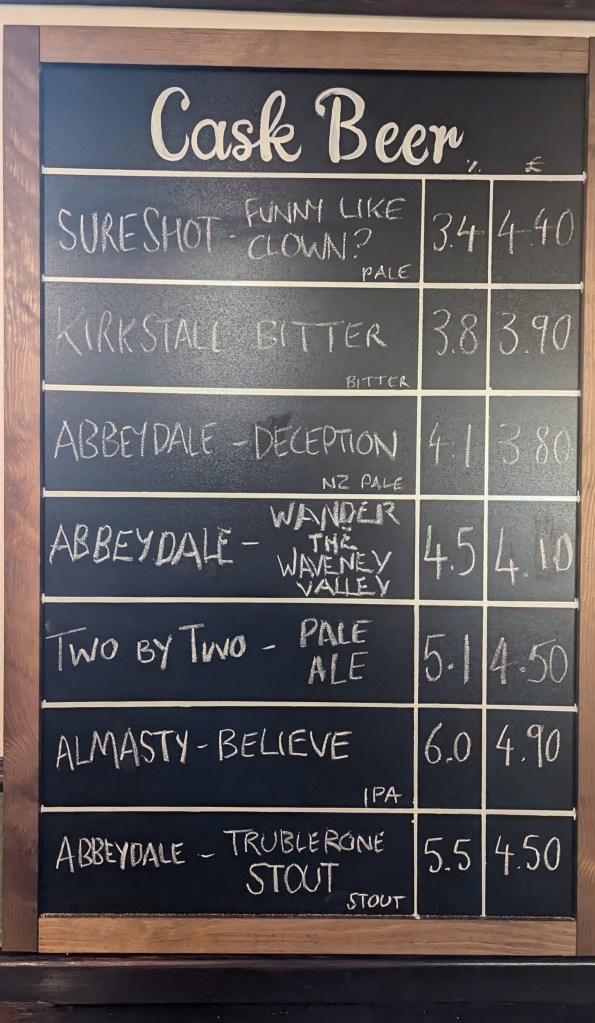 Cask Beer
% £
SURESHOT - FUNNY LIKE
CLOWN? 3.4 4.40
PALE
KIRKSTALL BITTER 3.8 3.90
BITTER
ABBEYDALE - DECEPTION 4.1 3.80
NZ PALE
ABBEYDALE - WANDER
THE
WAVENEY
VALLEY 4.5 4.10
TWO BY TWO - PALE
ALE 5.1 4.50
ALMASTY - BELIEVE 6.0 4.90
IPA
ABBEYDALE - TRUBLERONE
STOUT 5.5 4.50
STOUT